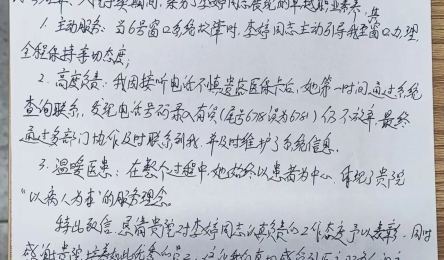 期间,亲历了李婷同志展现的卓越职业素养,
1. 主动服务:当6号窗口系统故障时,李婷同志主动引导我至窗口办理
全程保持等功态度;
2. 高度负责:我因接听电话不慎遗落医保卡后,她第一时间通过系统
查询联系,发现电话号码录入有误(尾号678误为6781)仍不放弃,最终
通过多部门协作及时联系到我,并及时维护了系统信息。
3. 温暖医患:在整个过程中她始终以患者为中心,体现了贵院
"以病人为本"的服务理念。
特此致信,恳请贵院对李婷同志认真负责的工作态度予以表彰,同时
感谢贵院培养